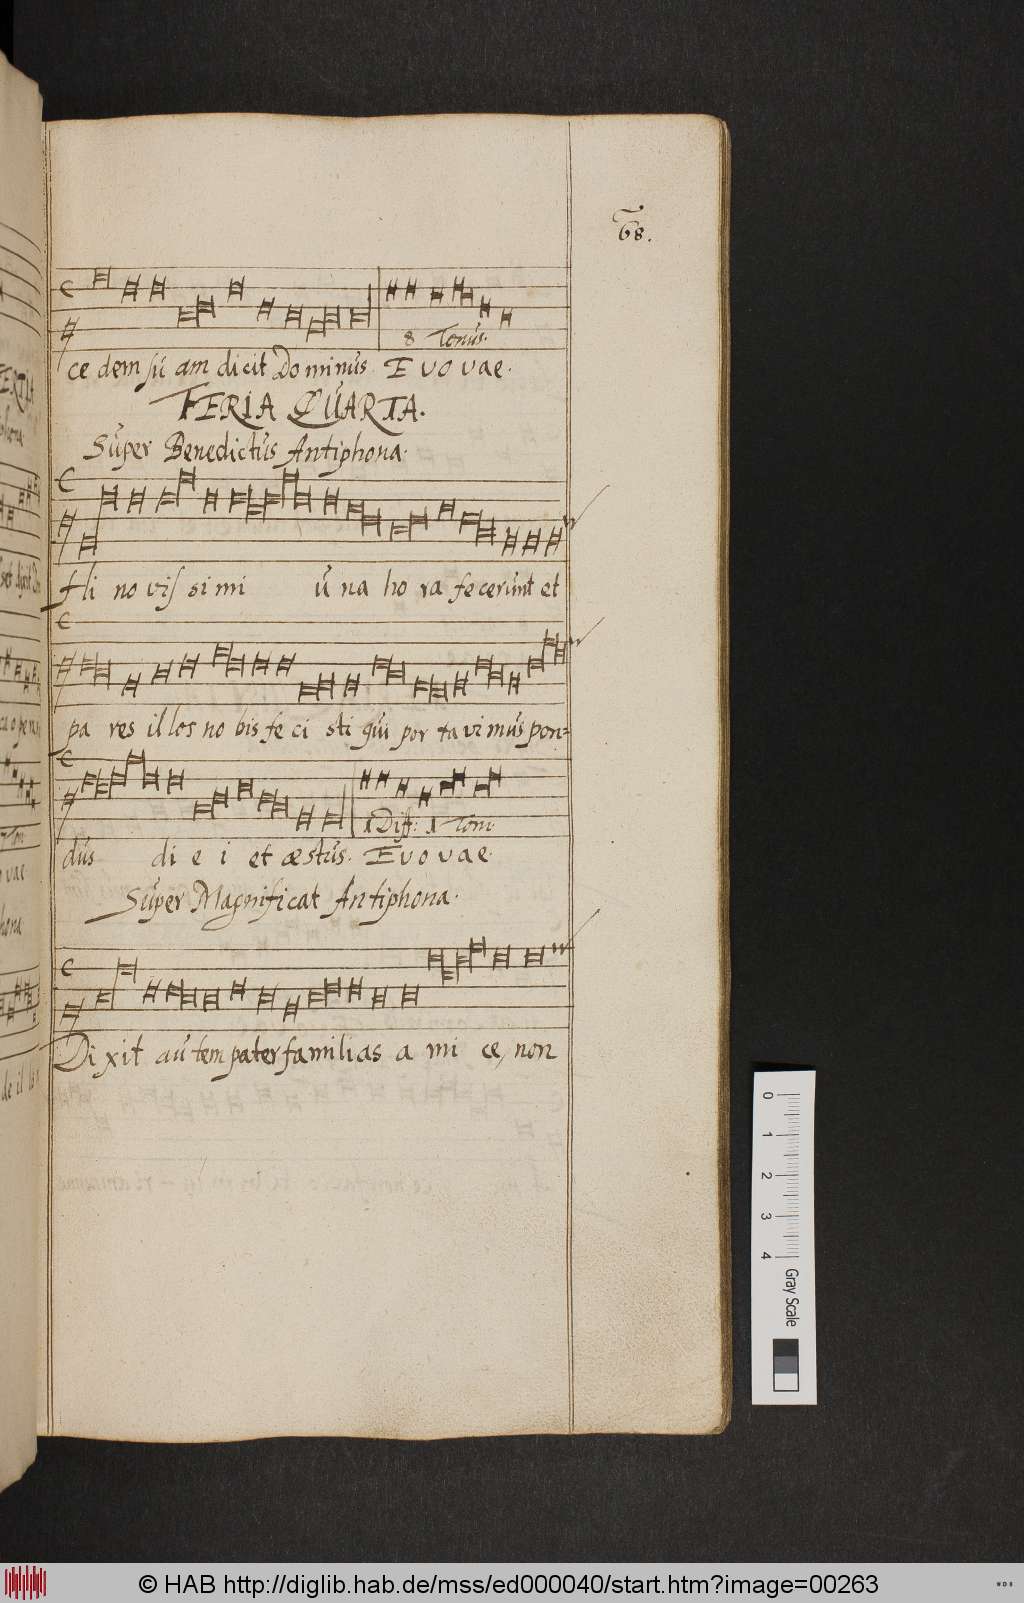 68.
8 Tonus.
ce dem su am dicit Do minus. E vo vae.
FERIA QUARTA.
Super Benedictus Antiphona.
Hi no vis si mi u na ho ra fecerunt et
pa res il los no bis fe ci sti qui por ta vi mus pon=
1 Diff: 1 Toni
dus di e i et æstus. E v o v a e.
Super Magnificat Antiphona.
Di xit au tem pater familias a mi ce, non
0 1 2 3 4 Gray Scale
© HAB http://diglib.hab.de/mss/ed000040/start.htm?image=00263